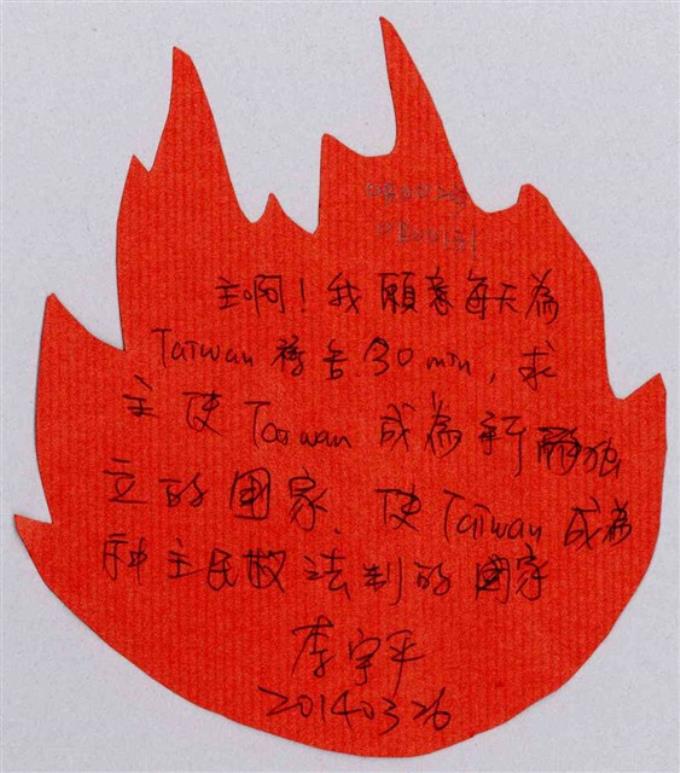 主啊！我願意每天為
Taiwan 禱告30min，求
主使Taiwan 成為新而独
立的國家、使Taiwan成為
神主民教法制的國家
李宇平
20140326